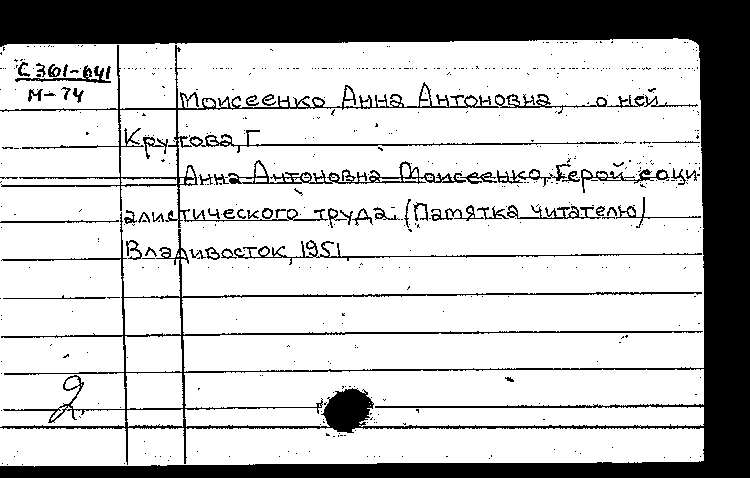 С 361-641
М-74
Моисеенко, Анна Антоновна, о ней
Крутова, Г.
Анна Антоновна Моисеенко, Герой соци
алистического труда. (Памятка читателю)
Владивосток, 1951.
2.